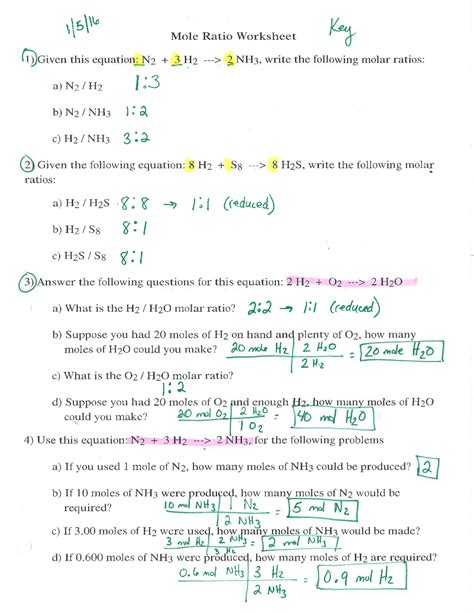 1/5/16 Mole Ratio Worksheet Key
1) Given this equation: N2 + 3 H2 ---> 2 NH3, write the following molar ratios:
a) N2 / H2 1:3
b) N2 / NH3 1:2
c) H2 / NH3 3:2
2) Given the following equation: 8 H2 + S8 ---> 8 H2S, write the following molar
ratios:
a) H2 / H2S 8:8 → 1:1 (reduced)
b) H2 / S8 8:1
c) H2S / S8 8:1
3) Answer the following questions for this equation: 2 H2 + O2 ---> 2 H2O
a) What is the H2 / H2O molar ratio? 2:2 → 1:1 (reduced)
b) Suppose you had 20 moles of H2 on hand and plenty of O2, how many
moles of H2O could you make? 20 mole H2 | 2 H2O = 20 mole H2O
2 H2
c) What is the O2 / H2O molar ratio?
1:2
d) Suppose you had 20 moles of O2 and enough H2, how many moles of H2O
could you make? 20 mol O2 | 2 H2O = 40 mol H2O
1 O2
4) Use this equation: N2 + 3 H2 ---> 2 NH3, for the following problems
a) If you used 1 mole of N2, how many moles of NH3 could be produced? 2
b) If 10 moles of NH3 were produced, how many moles of N2 would be
required? 10 mol NH3 | 1 N2 = 5 mol N2
2 NH3
c) If 3.00 moles of H2 were used, how many moles of NH3 would be made?
3 mol H2 | 2 NH3 = 2 mol NH3
3 H2
d) If 0.600 moles of NH3 were produced, how many moles of H2 are required?
0.6 mol NH3 | 3 H2 = 0.9 mol H2
2 NH3